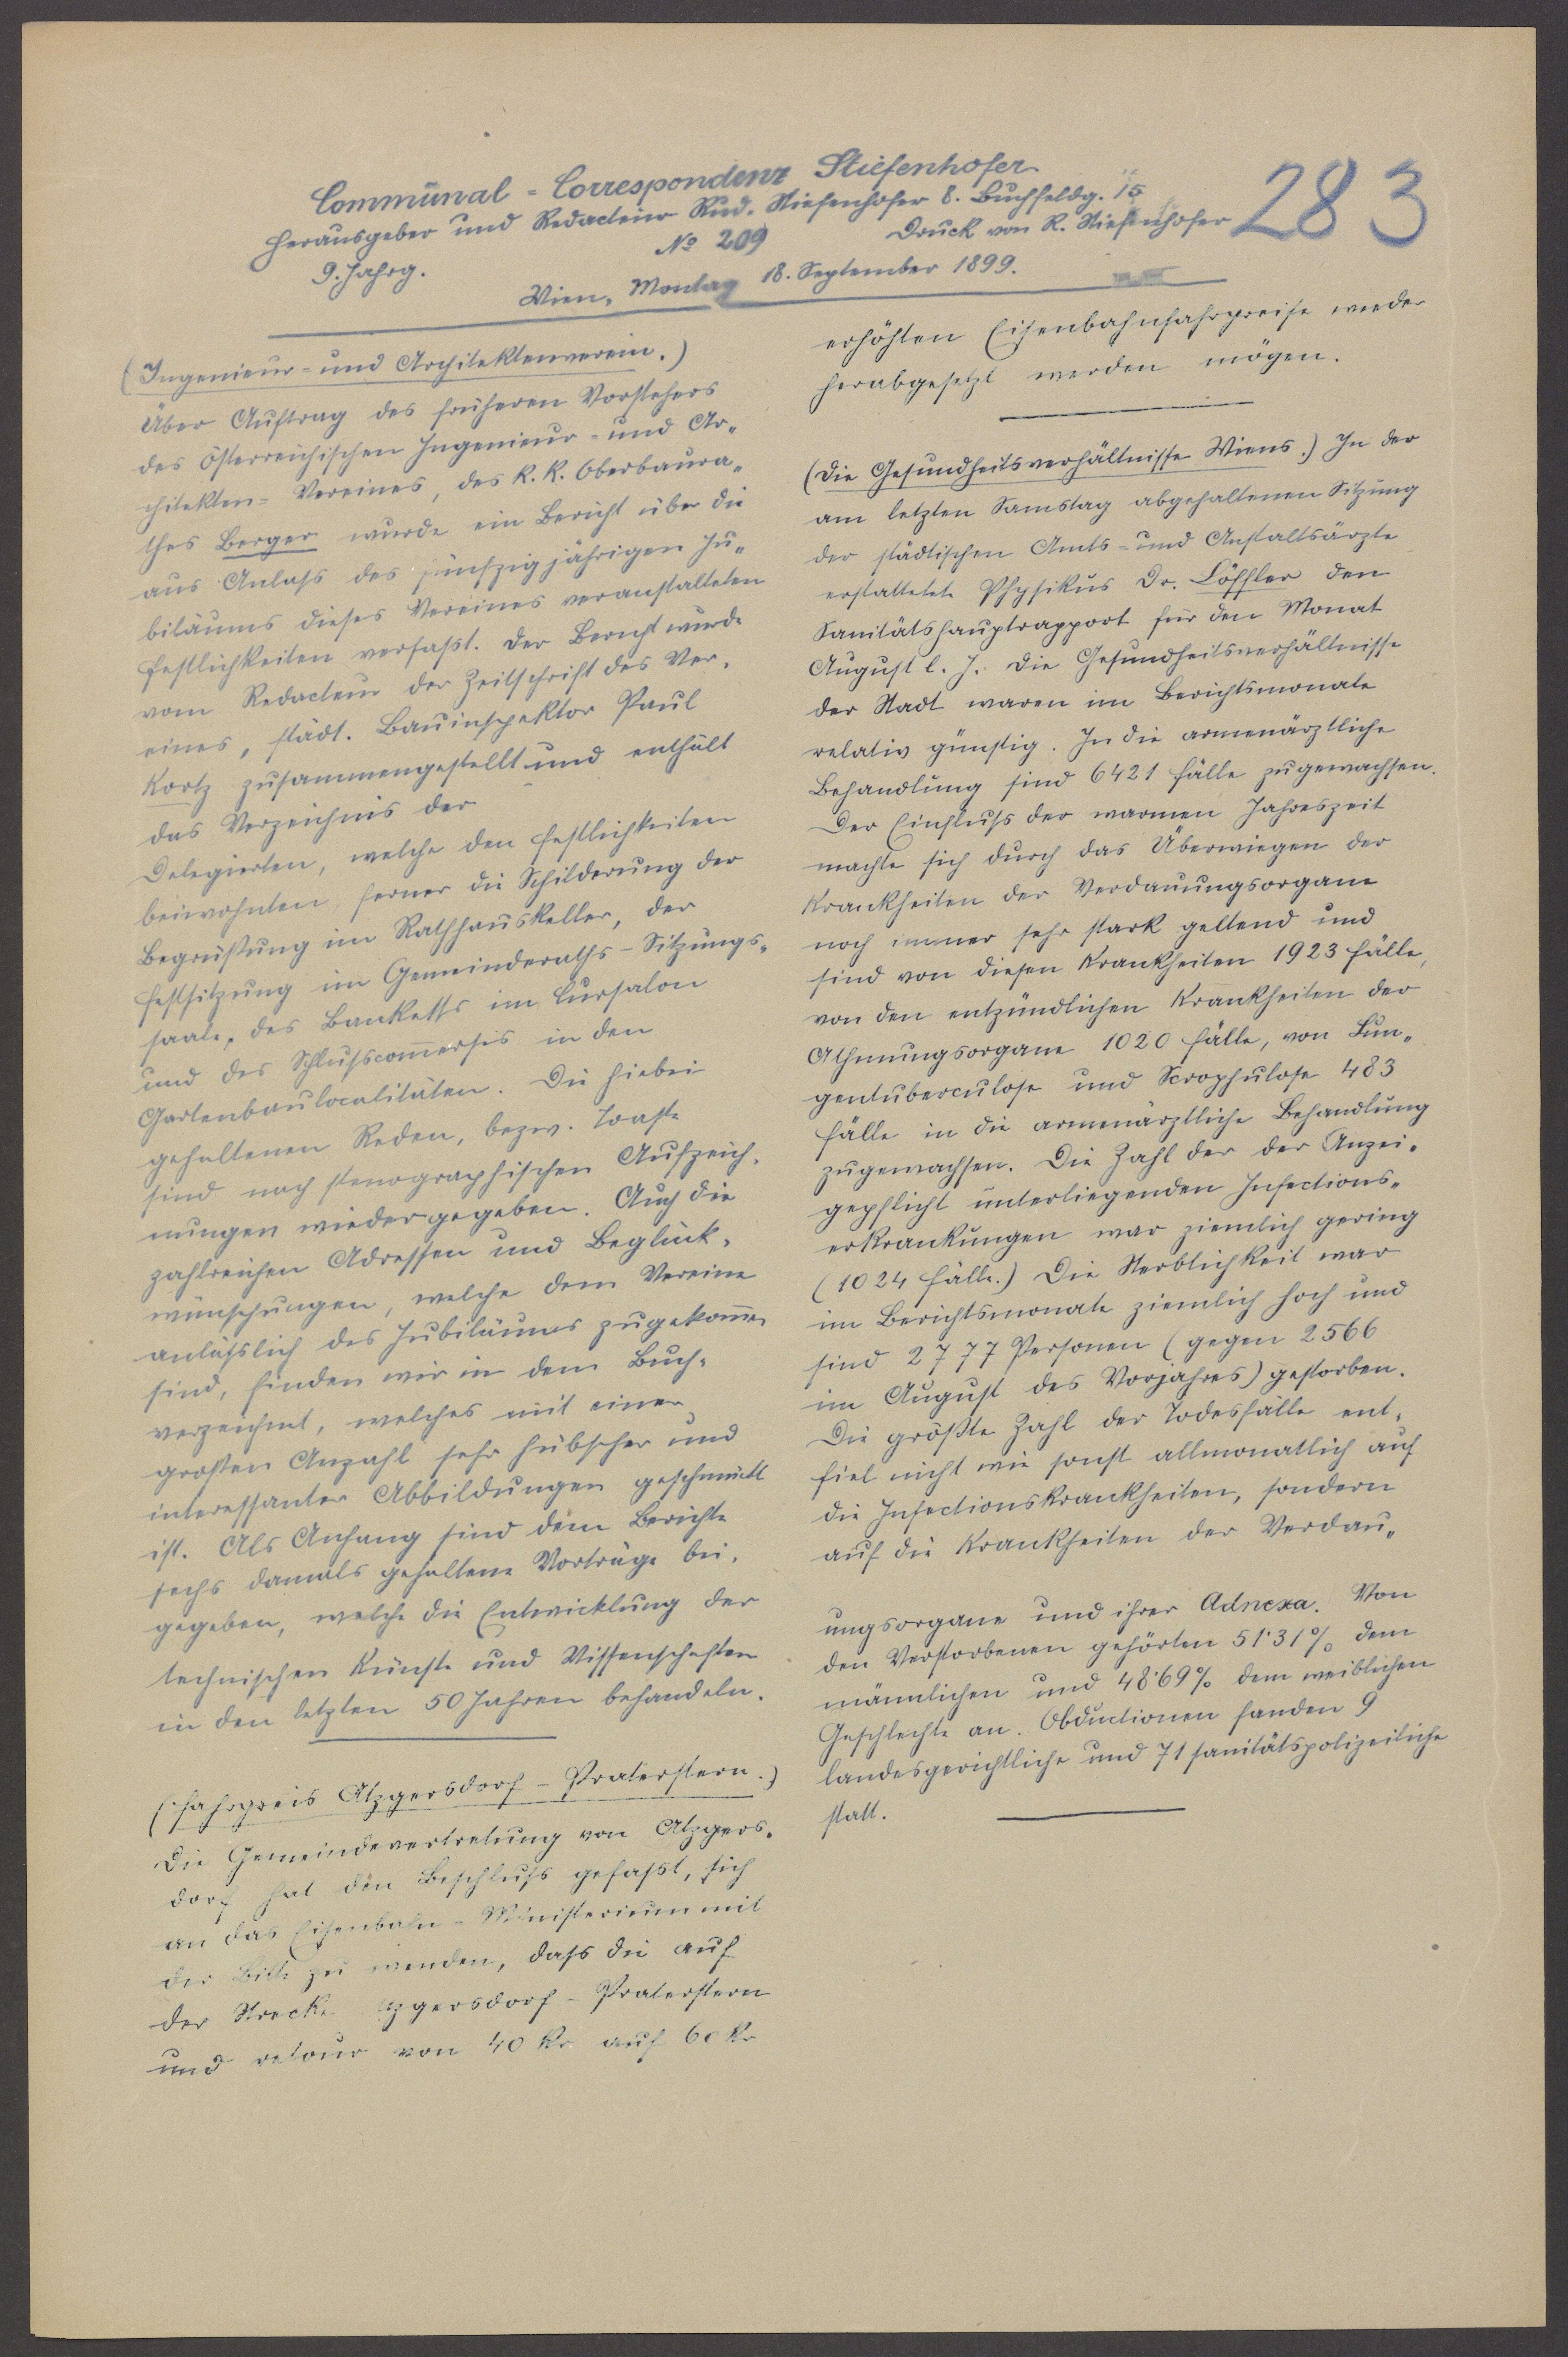 Communal-Correspondenz Stiefenhofer
Herausgeber und Redacteur Rud. Stiefenhofer 8. Buchfeldg. 15
283
9. Jahrg.
No 209
Druck von R. Stiefenhofer
Wien, Montag 18. September 1899.
(Ingenieur- und Architektenverein.)
Über Auftrag des früheren Vorstehers
des österreichischen Ingenieur- und Ar-
chitekten-Vereines, des k. k. Oberbaura-
thes Berger wurde ein Bericht über die
aus Anlass des fünfzigjährigen Ju-
biläums dieses Vereines veranstalteten
Festlichkeiten verfaßt. Der Bericht wurde
vom Redacteur der Zeitschrift des Ver-
eines, städt. Bauinspektor Paul
Kortz zusammengestellt und enthält
das Verzeichnis der
Delegierten, welche den Festlichkeiten
beiwohnten ferner die Schilderung der
Begrüßung im Rathhauskeller, der
Festsitzung im Gemeinderaths-Sitzungs-
saale, des Banketts im Cursalon
und des Schlußscom̅erses in den
Gartenbaulocalitäten. Die hiebei
gehaltenen Reden, bezw. Toaste
sind nach stenographischen Aufzeich-
nungen wiedergegeben. Auch die
zahlreichen Adressen und Beglück-
wünschungen, welche dem Vereine
anläßlich des Jubiläums zugekom̅en
sind, finden wir in dem Buch-
verzeichnet, welches mit einer
großen Anzahl sehr hübscher und
interessanter Abbildungen geschmückt
ist. Als Anhang sind dem Berichte
sechs damals gehaltene Vorträge bei-
gegeben, welche die Entwicklung der
technischen Künste und Wissenschaften
in den letzten 50 Jahren behandeln.
(Fahrpreis Atzgersdorf-Praterstern.)
Die Gemeindevertretung von Atzgers-
dorf hat den Beschluß gefaßt, sich
an das Eisenbahn-Ministerium mit
der Bitte zu wenden, dass die auf
der Strecke Atzgersdorf-Praterstern
und retour von 40 kr auf 60 kr
erhöhten Eisenbahnfahrpreise wieder
herabgesetzt werden mögen.
(Die Gesundheitsverhältnisse Wiens.) In der
am letzten Samstag abgehaltenen Sitzung
der städtischen Amts- und Anstaltsärzte
erstattete Physikus Dr. Löffler den
Sanitätshauptrapport für den Monat
August l. J. Die Gesundheitsverhältnisse
der Stadt waren im Berichtsmonate
relativ günstig. In die armenärztliche
Behandlung sind 6421 Fälle zugewachsen.
Der Einfluß der warmen Jahreszeit
machte sich durch das Überwiegen der
Krankheiten der Verdauungsorgane
noch immer sehr stark geltend und
sind von diesen Krankheiten 1923 Fälle,
von den entzündlichen Krankheiten der
Athmungsorgane 1020 Fälle, von Lun-
gentuberculose und Scrophulose 483
Fälle in die armenärztliche Behandlung
zugewachsen. Die Zahl der der Anzei-
gepflicht unterliegenden Infections-
erkrankungen war ziemlich gering
(1024 Fälle.) Die Sterblichkeit war
im Berichtsmonate ziemlich hoch und
sind 2777 Personen (gegen 2566
im August des Vorjahres) gestorben.
Die größte Zahl der Todesfälle ent-
fiel nicht wie sonst allmonatlich auf
die Infectionskrankheiten, sondern
auf die Krankheiten der Verdau-
ungsorgane und ihrer Adnexa. Von
den Verstorbenen gehörten 51·31% dem
männlichen und 48·69% dem weiblichen
Geschlechte an. Obductionen fanden 9
landesgerichtliche und 71 sanitätspolizeiliche
statt.